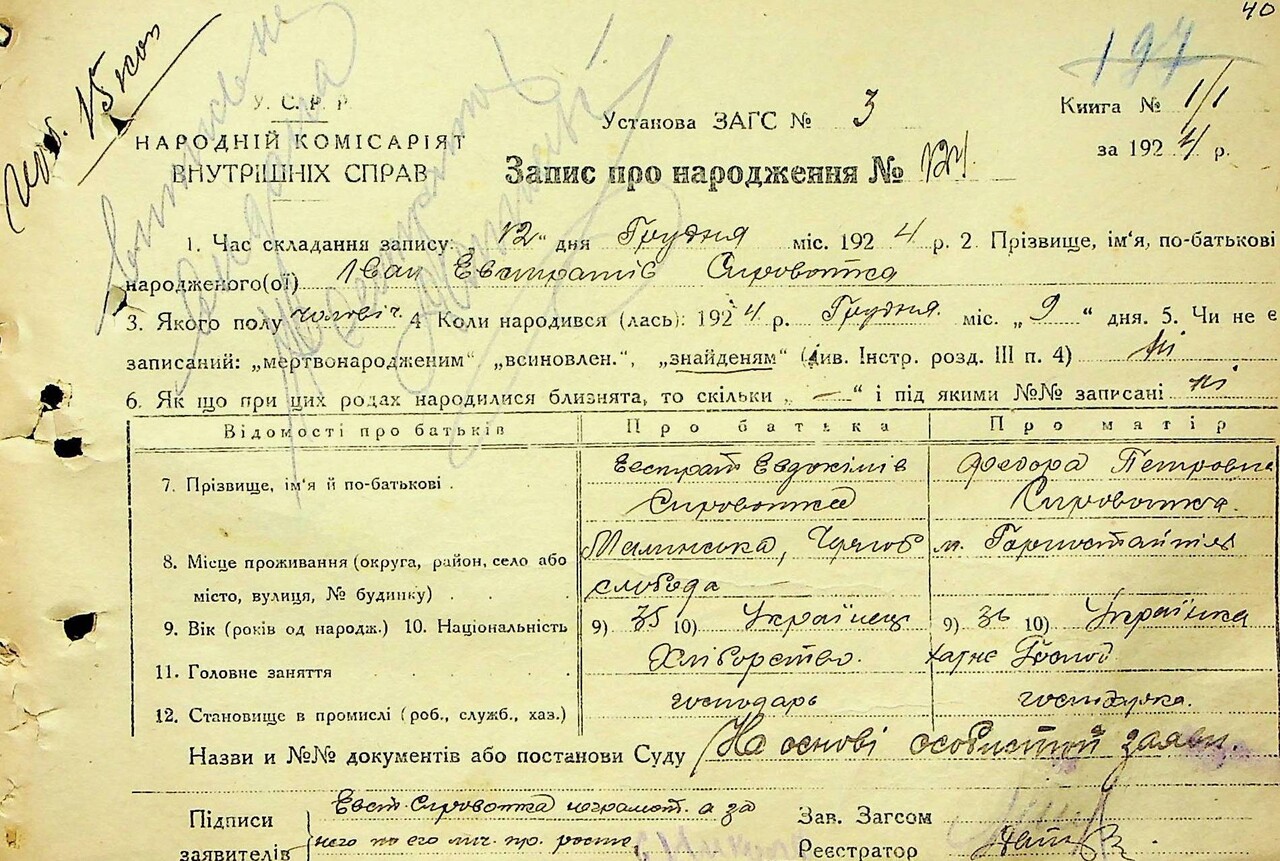 40
15 коп
197
У. С. Р. Р.
НАРОДНІЙ КОМІСАРІЯТ
ВНУТРІШНІХ СПРАВ
Установа ЗАГС № 3
Книга № 1/1
за 1924 р.
Запис про народження № 124
1. Час складання запису: „12“ дня Грудня міс. 1924 р. 2. Прізвище, ім'я, по-батькові
народженого(ої) Іван Евстратів Сироватка
3. Якого полу чоловіч. 4 Коли народився (лась): 1924 р. Грудня міс. „9“ дня. 5. Чи не є
записаний: „мертвонародженим“ „всиновлен.“, „знайденям“ (див. Інстр. розд. III п. 4) ні
6. Як що при цих родах народилися близнята, то скільки „—“ і під якими №№ записані ні
Відомості про батьків Про батька Про матір
7. Прізвище, ім'я й по-батькові . Евстрат Евдокімів Федора Петровна
Сироватка Сироватка.
8. Місце проживання (округа, район, село або Малинська, м. Горностайпіль
місто, вулиця, № будинку) . . . слобода
9. Вік (років од народж.) 10. Національність 9) 35 10) Українец 9) 36 10) Українка
11. Головне заняття . . . . Хліборство. хатнє Господ
12. Становище в промислі (роб., служб., хаз.) господарь господарка.
Назви и №№ документів або постанови Суду На основі особистой заяви.
Підписи
заявителів
Евст. Сироватка неграмот. а за
него по его лич. пр. роспис.
Зав. Загсом
Реєстратор